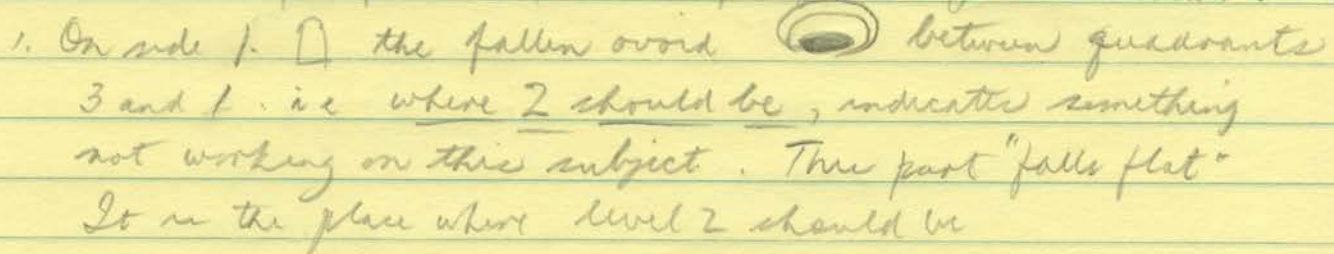 1. On side 1. the fallen ovoid between quadrants
3 and 1. i e where 2 should be, indicates something
not working on this subject. This part "falls flat"
It is the place where level 2 should be